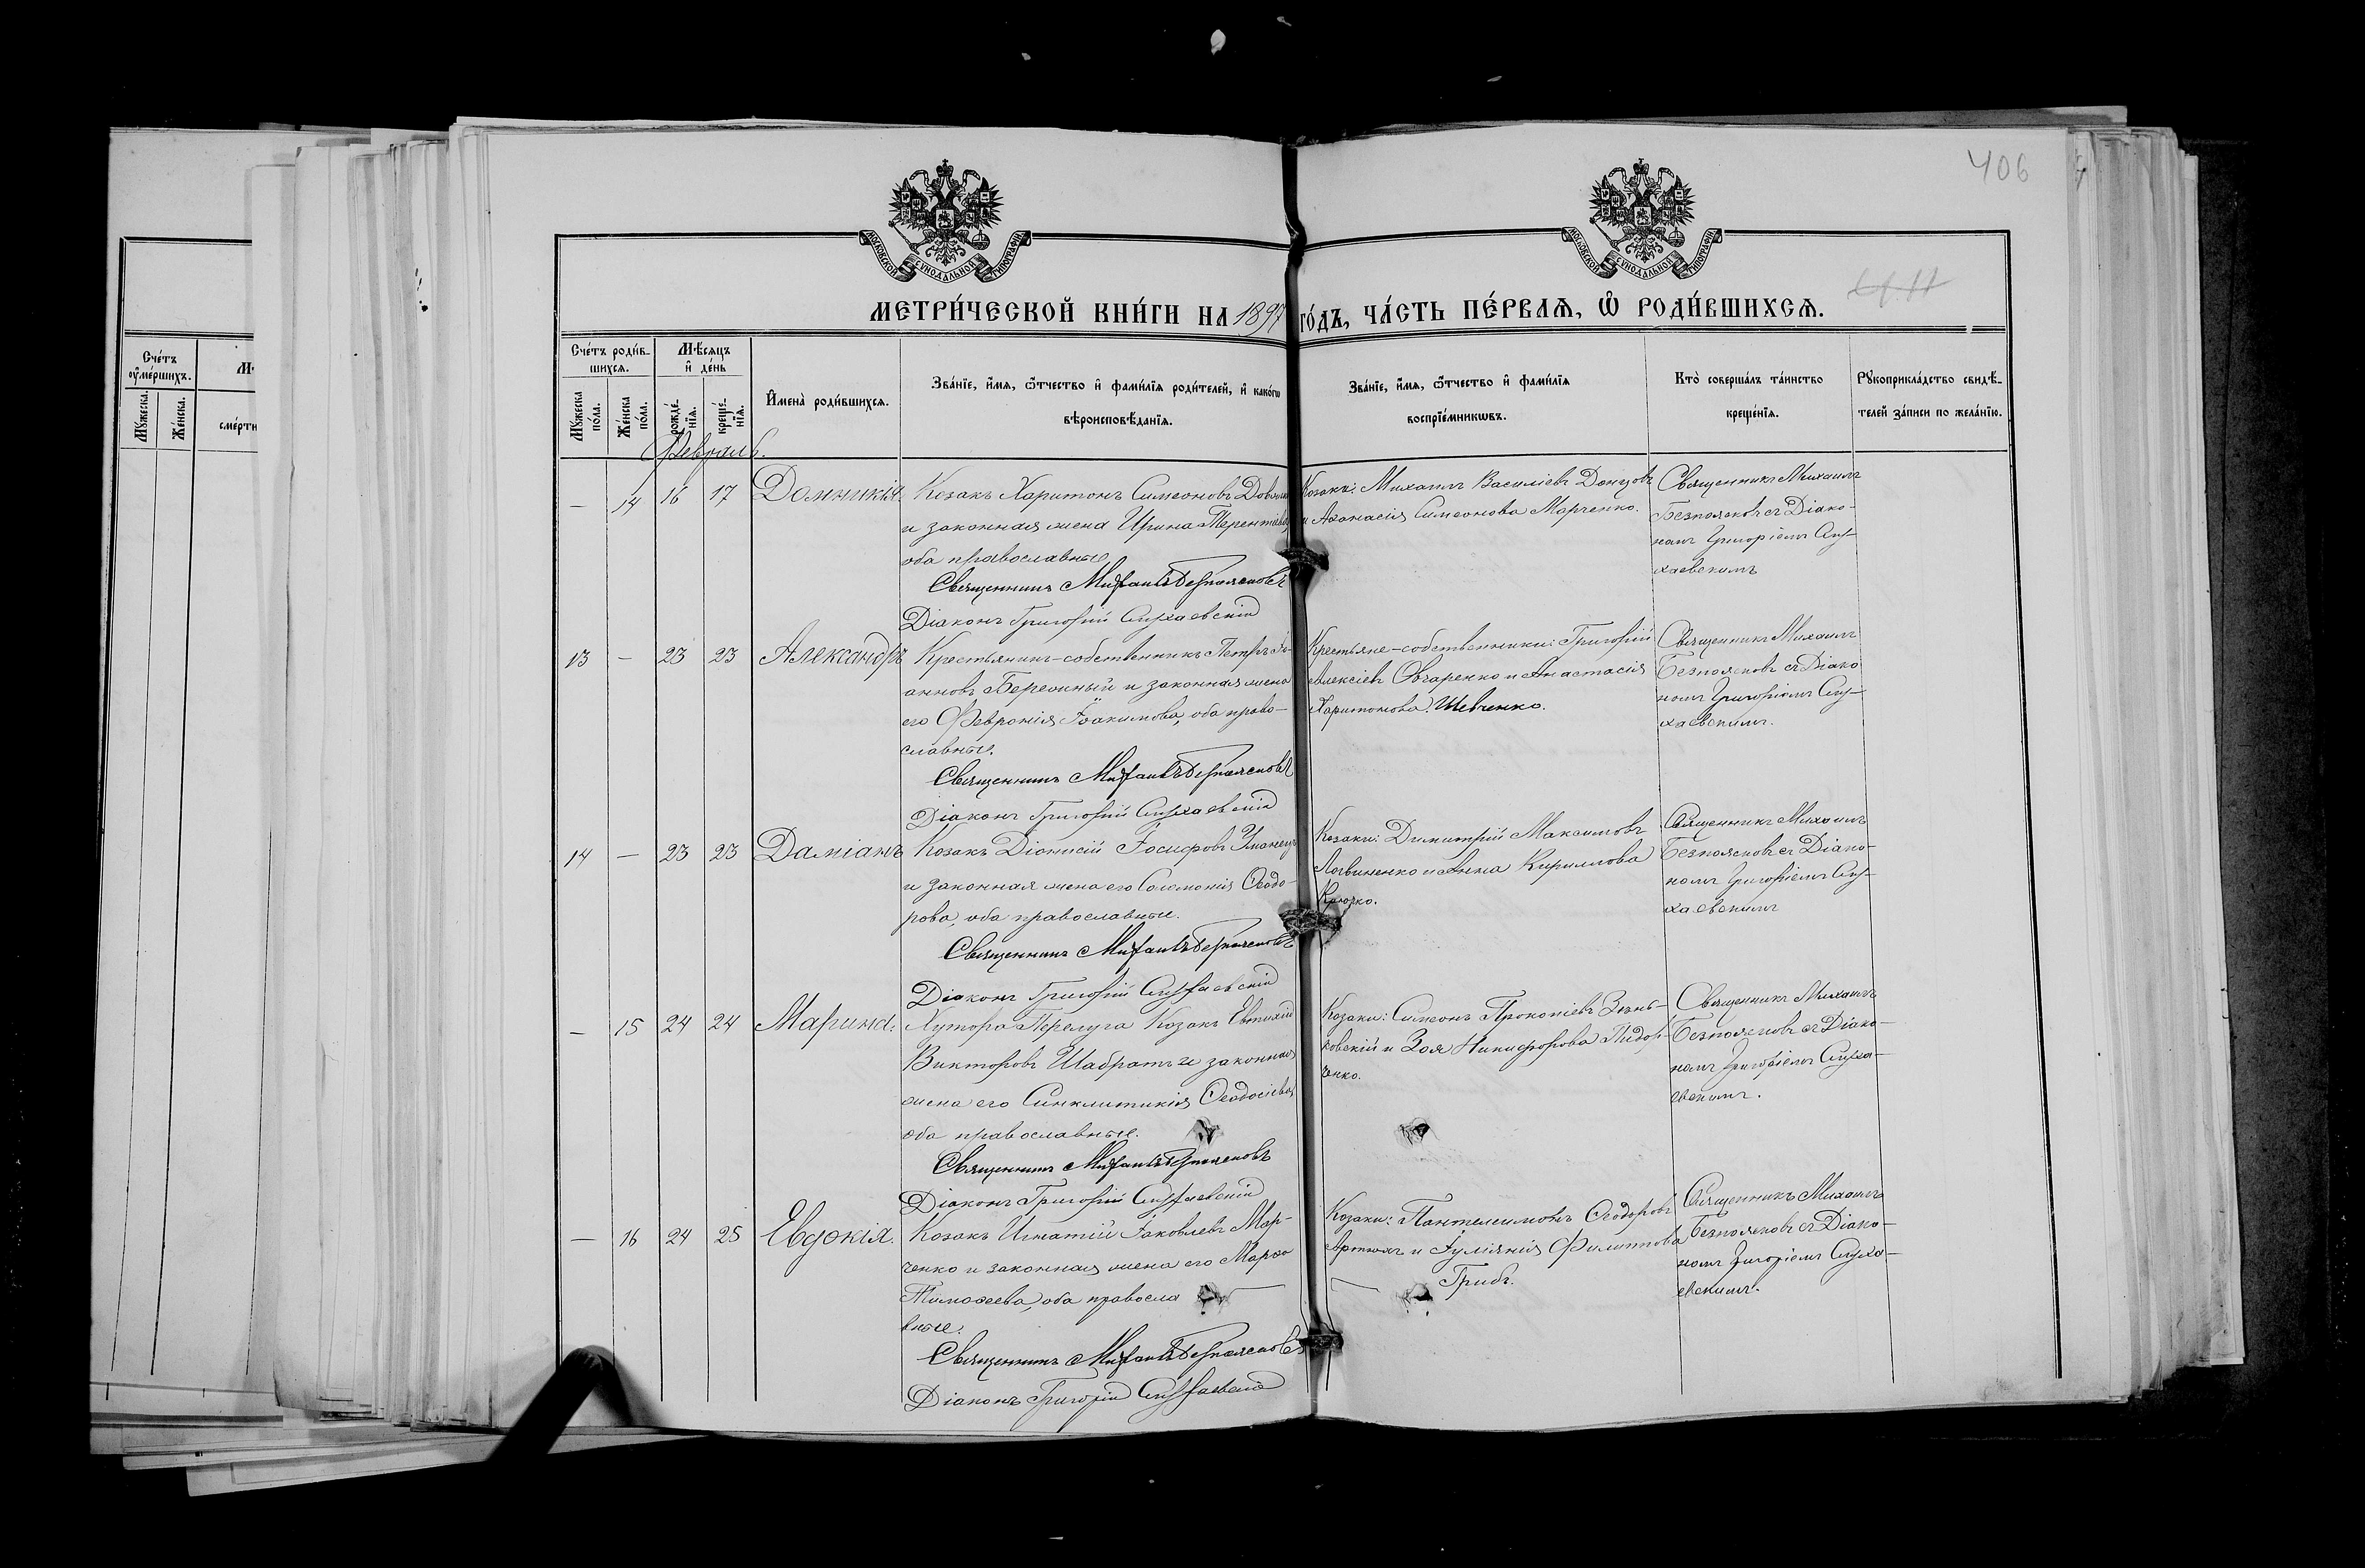 406
МОСКОВСКОЙ СѴНОДАЛЬНОЙ ТИПОГРАФІИ
МОСКОВСКОЙ СѴНОДАЛЬНОЙ ТИПОГРАФІИ
МЕТРИ́ЧЕСКОЙ КНИ́ГИ НА 1897 ГО́ДЪ, ЧА́СТЬ ПЕ́РВАѦ, Ѡ РОДИ́ВШИХСѦ.
Сче́тъ оу҆ме́ршихъ.
Мꙋ́жеска.
Же́нска.
сме́рти
Сче́тъ роди́в-
шихсѧ.
Мꙋ́жеска по́ла.
Же́нска по́ла.
Мѣ́сѧцъ
и҆ де́нь
рожде́-
нїѧ.
креще́-
нїѧ.
И҆мена̀ роди́вшихсѧ.
Зва́нїе, и҆́мѧ, ѻ҆́тчество и҆ фами́лїѧ роди́телей, и҆ како́гѡ
вѣроисповѣ́данїѧ.
Зва́нїе, и҆́мѧ, ѻ҆́тчество и҆ фами́лїѧ
воспрїе́мникѡвъ.
Кто̀ соверша́лъ та́инство
креще́нїѧ.
Рꙋкоприкла́дство свидѣ́-
телей за́писи по жела́нїю.
Февраль.
— 14 16 17 Домникія
Козакъ Харитонъ Симеоновъ
и законная жена Ирина Терентіева
оба православные
Священникъ Михаилъ Безпоясновъ
Діаконъ Григорій Слухаевскій
Козаки: Михаилъ Василіевъ Донцовъ
и Аѳанасія Симеонова Марченко.
Священникъ Михаилъ
Безпоясновъ съ Діако-
номъ Григоріемъ Слу-
хаевскимъ
13 — 23 23 Александръ
Крестьянинъ-собственникъ Петръ Іо-
анновъ Бережный и законная жена
его Февронія Іоакимова, оба право-
славные.
Священникъ Михаилъ Безпоясновъ
Діаконъ Григорій Слухаевскій
Крестьяне-собственники: Григорій
Алексіевъ Овчаренко и Анастасія
Харитонова Шевченко.
Священникъ Михаилъ
Безпоясновъ съ Діако
номъ Григоріемъ Слу-
хаевскимъ.
14 — 23 23 Даміанъ
Козакъ Діонисій Іосифовъ Уманецъ
и законная жена его Соломонія Ѳеодо-
рова, оба православные.
Священникъ Михаилъ Безпоясновъ
Діаконъ Григорій Слухаевскій
Козаки: Димитрій Максимовъ
Логвиненко и Анна Кириллова
Крючко.
Священникъ Михаилъ
Безпоясновъ съ Діако-
номъ Григоріемъ Слу-
хаевскимъ
— 15 24 24 Марина.
Хутора Перелуга Козакъ Евтихій
Викторовъ Шабратъ и законная
жена его Синклитикія Ѳеодосіева
оба православные.
Священникъ Михаилъ Безпоясновъ
Діаконъ Григорій Слухаевскій
Козаки: Симеонъ Прокопіевъ Зень-
ковскій и Зоя Никифорова Пидор-
ченко.
Священникъ Михаилъ
Безпоясновъ съ Діако-
номъ Григоріемъ Слуха-
евскимъ.
— 16 24 25 Евдокія.
Козакъ Игнатій Іаковлевъ Мар-
ченко и законная жена его Марѳа
Тимоѳеева, оба правосла
вные.
Священникъ Михаилъ Безпоясновъ
Діаконъ Григорій Слухаевскій
Козаки: Пантелеимонъ Ѳеодоровъ
Артюхъ и Іуліянія Филиппова
Грибъ.
Священникъ Михаилъ
Безпоясновъ съ Діако-
номъ Григоріемъ Слуха-
евскимъ.